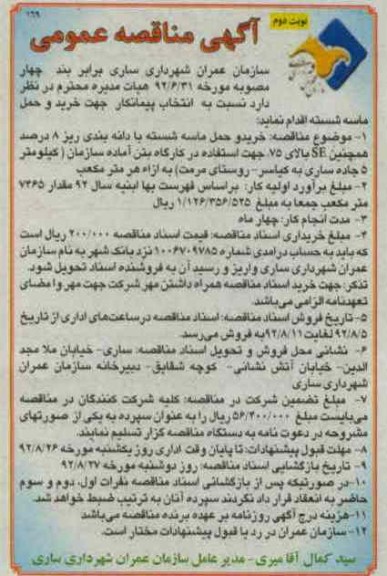 ۱۲۹
نوبت دوم
آگهی مناقصه عمومی
سازمان عمران شهرداری ساری برابر بند چهار
مصوبه مورخه ۹۲/۶/۳۱ هیات مدیره محترم در نظر
دارد نسبت به انتخاب پیمانکار جهت خرید و حمل
ماسه شسته اقدام نماید:
۱- موضوع مناقصه: خریدو حمل ماسه شسته با دانه بندی ریز ۸ درصد
همچنین SE بالای ۷۵. جهت استفاده در کارگاه بتن آماده سازمان ( کیلومتر
۵ جاده ساری به کیاسر- روستای مرمت) به ازاء هر متر مکعب
۲- مبلغ برآورد اولیه کار: براساس فهرست بها ابنیه سال ۹۲ مقدار ۷۴۶۵
متر مکعب جمعا به مبلغ ۱/۱۲۶/۳۵۶/۵۲۵ ریال
۳- مدت انجام کار: چهار ماه
۴- مبلغ خریداری اسناد مناقصه: قیمت اسناد مناقصه ۲۰۰/۰۰۰ ریال است
که باید به حساب درآمدی شماره ۱۰۰۶۷۰۹۷۸۵ نزد بانک شهر به نام سازمان
عمران شهرداری ساری واریز و رسید آن به فروشنده اسناد تحویل شود.
تذکر: جهت خرید اسناد مناقصه همراه داشتن مهر شرکت جهت مهر وا مضای
تعهدنامه الزامی می‌باشد.
۵- تاریخ فروش اسناد مناقصه: اسناد مناقصه درساعت‌های اداری از تاریخ
۹۲/۸/۵ لغایت ۹۲/۸/۱۱به فروش می‌رسد.
۶- نشانی محل فروش و تحویل اسناد مناقصه: ساری- خیابان ملا مجد
الدین- خیابان آتش نشانی- کوچه شقایق- دبیرخانه سازمان عمران
شهرداری ساری
۷- مبلغ تضمین شرکت در مناقصه: کلیه شرکت کنندگان در مناقصه
می‌بایست مبلغ ۵۶/۴۰۰/۰۰۰ ریال را به عنوان سپرده به یکی از صورتهای
مشروحه در دعوت نامه به دستگاه مناقصه گزار تسلیم نمایند.
۸- مهلت قبول پیشنهادات: تا پایان وقت اداری روز یکشنبه مورخه ۹۲/۸/۲۶
۹- تاریخ بازگشایی اسناد مناقصه: روز دوشنبه مورخه ۹۲/۸/۲۷
۱۰- در صورتیکه پس از بازگشائی اسناد مناقصه نفرات اول، دوم و سوم
حاضر به انعقاد قرار داد نگردند سپرده آنان به ترتیب ضبط خواهد شد.
۱۱-هزینه درج آگهی روزنامه بر عهده برنده مناقصه می‌باشد
۱۲- سازمان عمران در رد یا قبول پیشنهادات مختار است.
سید کمال آقا میری - مدیر عامل سازمان عمران شهرداری ساری